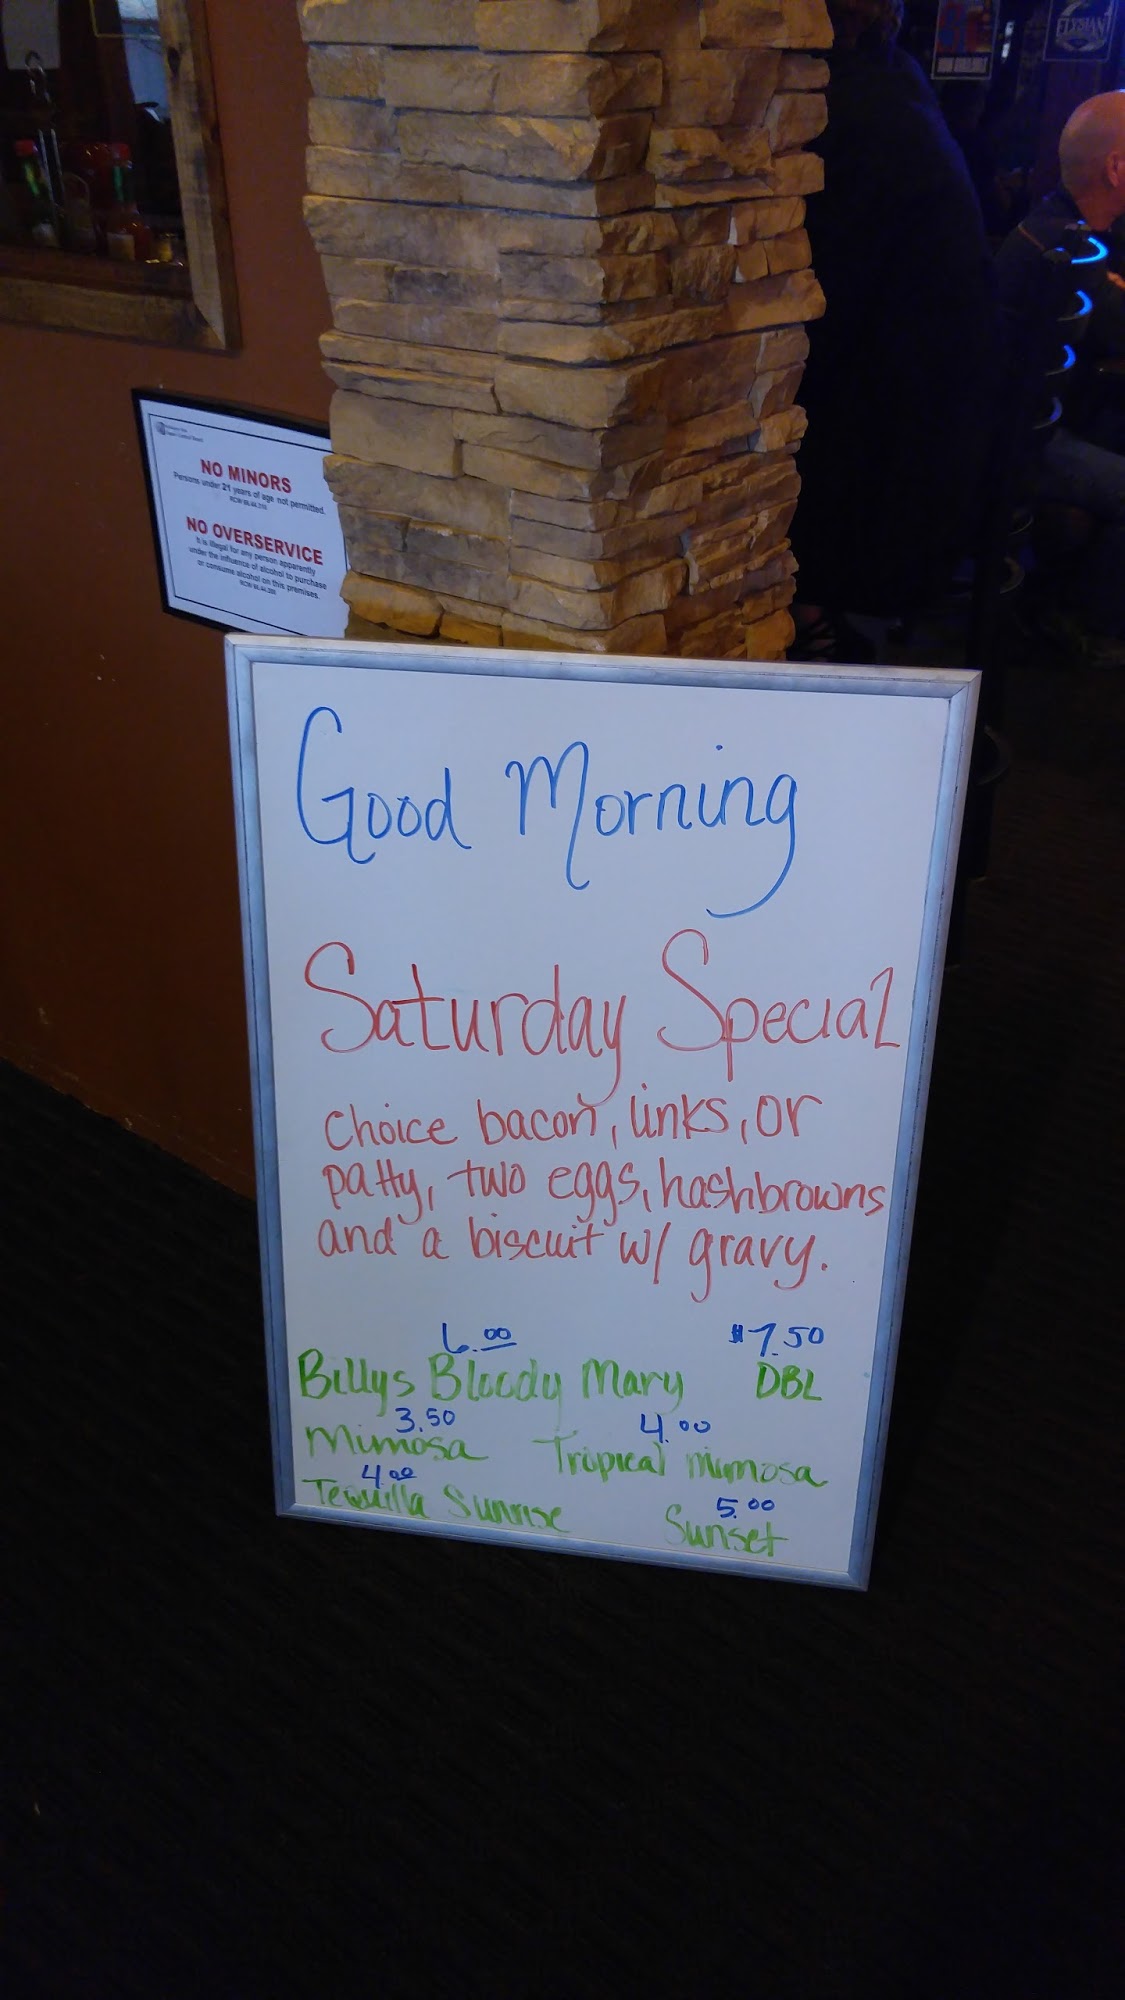 ELYSIAN
NO MINORS
Persons under 21 years of age not permitted.
NO OVERSERVICE
It is illegal for any person apparently
under the influence of alcohol to purchase
or consume alcohol on this premises.
Good Morning
Saturday Special
Choice bacon, links, or
patty, two eggs, hashbrowns
and a biscuit w/ gravy.
6.00 $7.50
Billys Bloody Mary DBL
3.50 4.00
Mimosa Tropical mimosa
4.00 5.00
Tequilla Sunrise Sunset